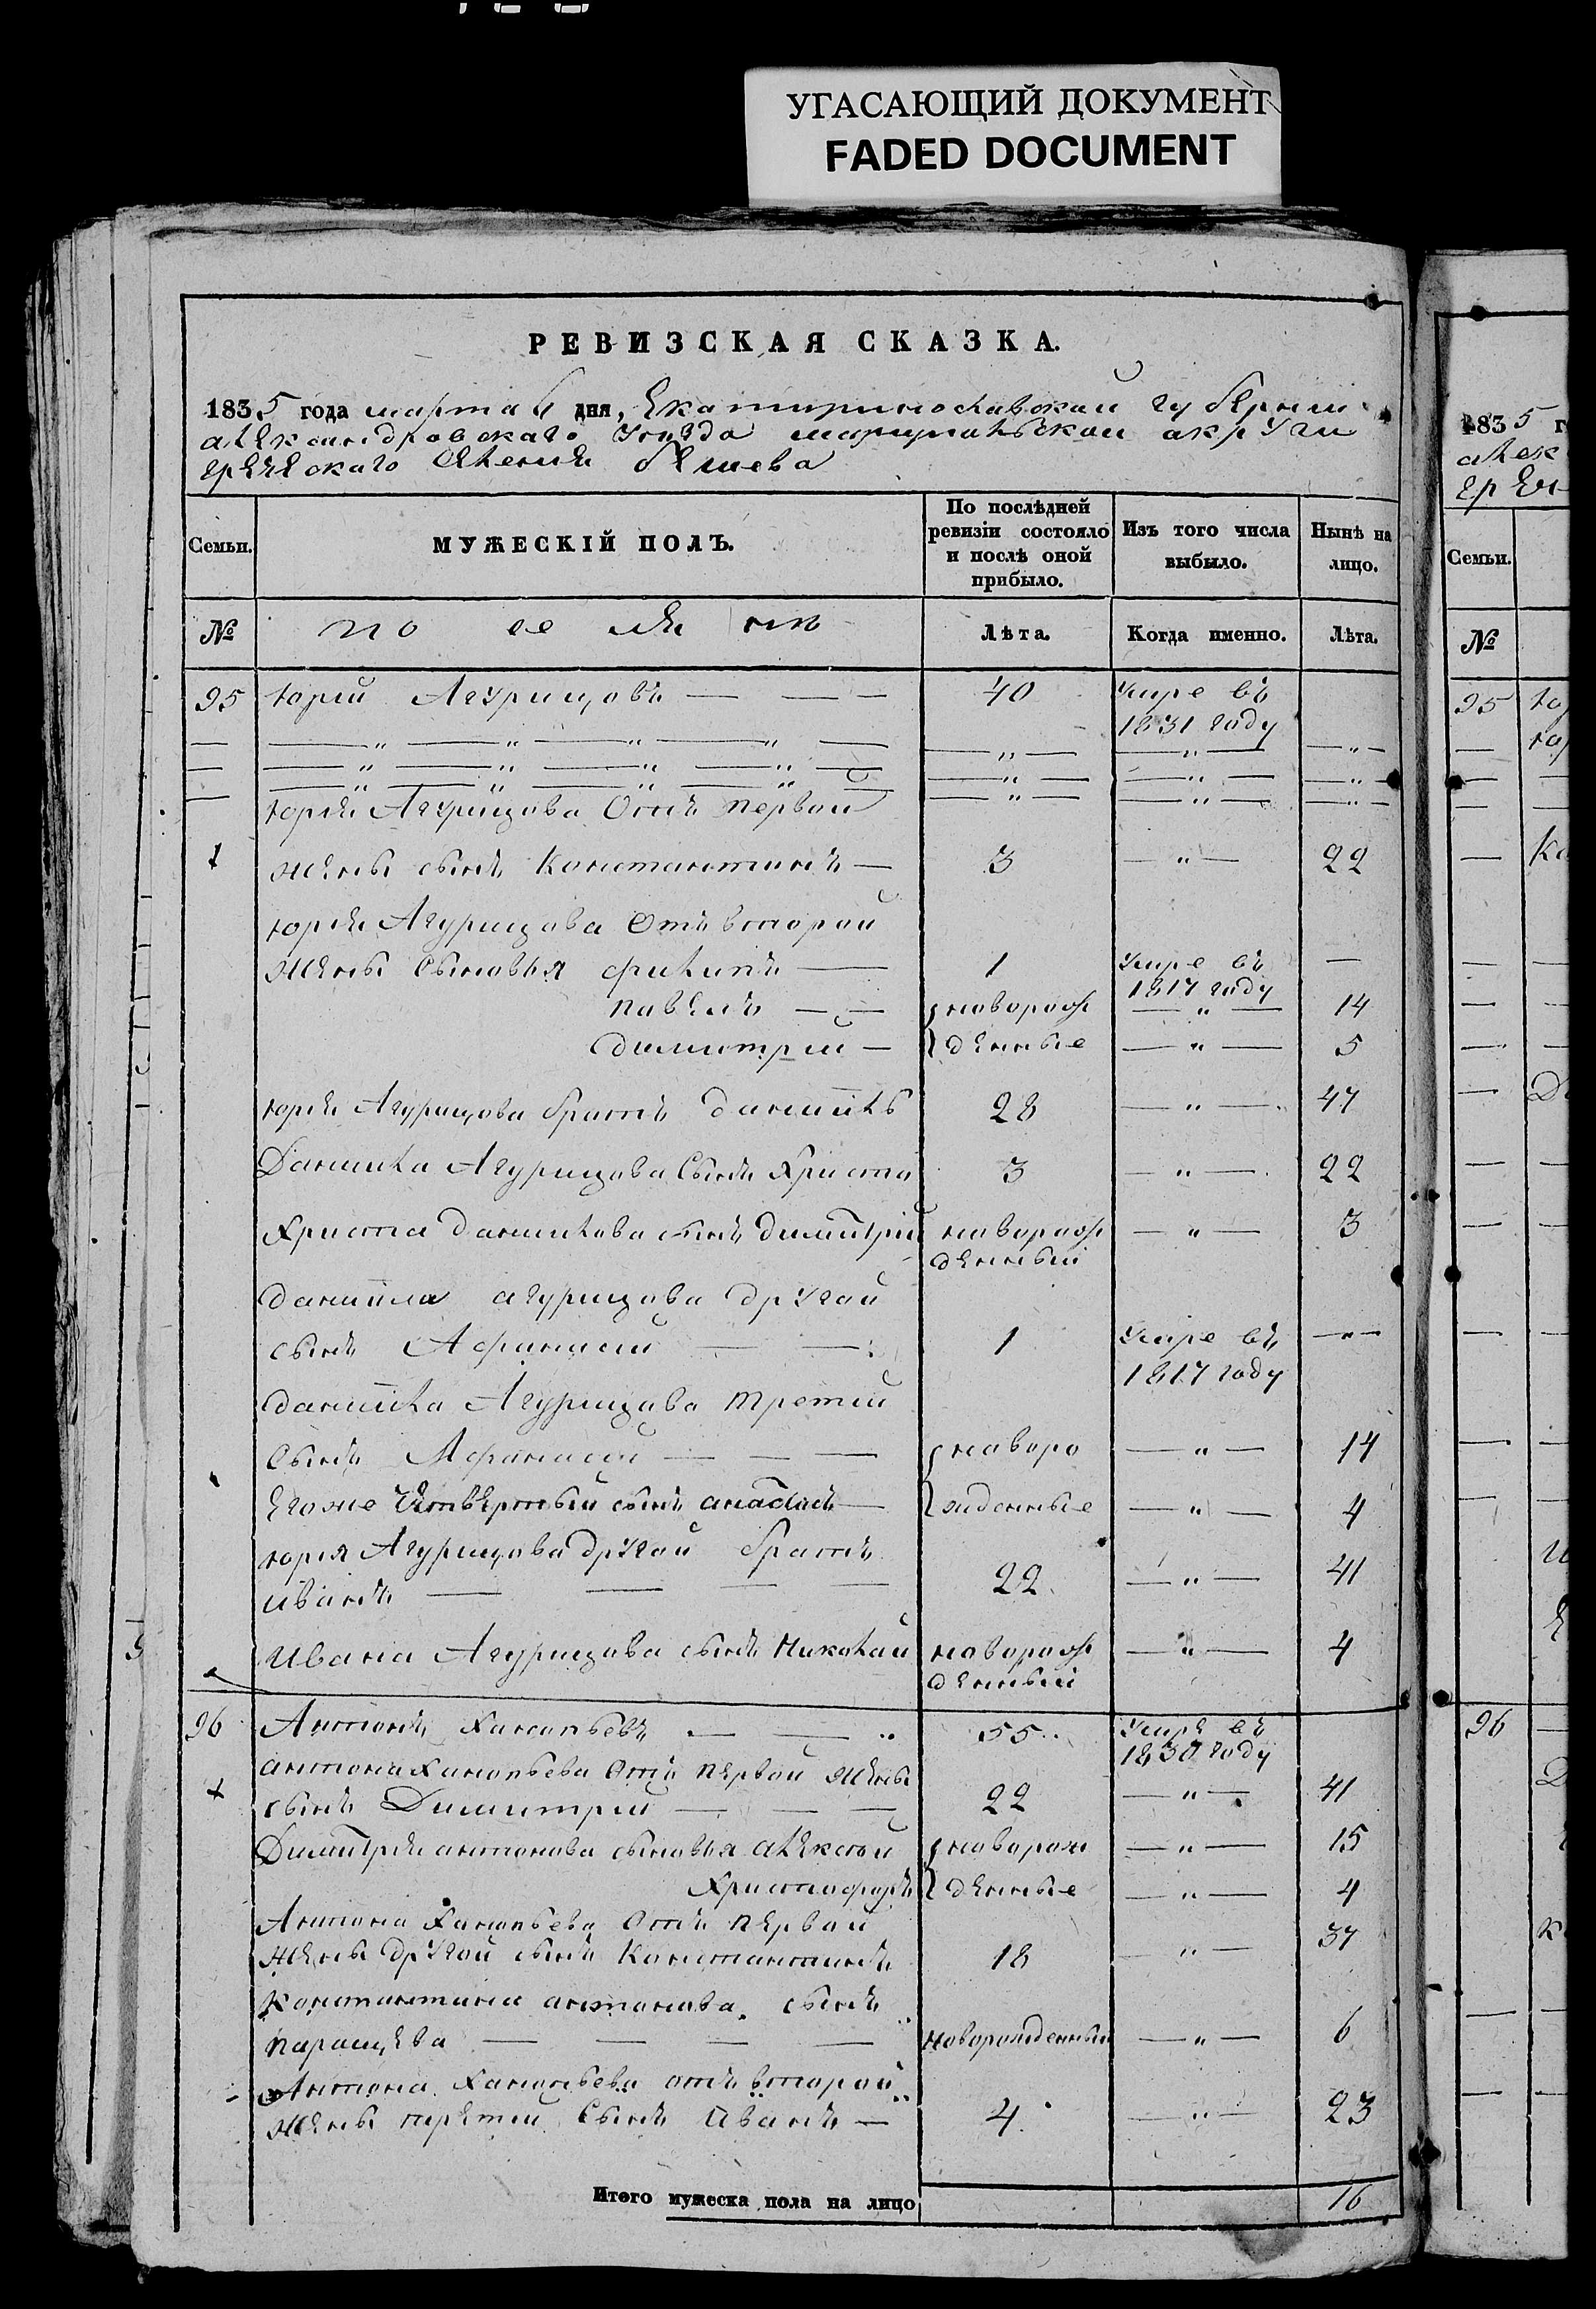 УГАСАЮЩИЙ ДОКУМЕНТ
FADED DOCUMENT
РЕВИЗСКАЯ СКАЗКА.
1835 года марта 6 дня, Екатиринославской губернии
александровскаго уезда мариупольской акруги
греческаго селения бешева
Семьи.
МУЖЕСКІЙ ПОЛЪ.
По послѣдней ревизіи состояло и послѣ оной прибыло.
Изъ того числа выбыло.
Нынѣ на лицо.
№
Лѣта.
Когда именно.
Лѣта.
95 Юрий Агурицовъ — — — 40 Умре въ
1831 году
Юрия Агурицова Отъ первой
жены сынъ Константинъ — 3 — " — 22
Юрия Агурицова Отъ второй
жены Сыновья филипъ — 1 Умре въ —
1817 году
павелъ — — новорож — " — 14
димитрий — денные — " — 5
Юрия Агурицова братъ даниилъ 28 — " — 47
Даниила Агурицова Сынъ Христа 3 — " — 22
Христа данилова сынъ димитрий новорож — " — 3
денный
даниила агурицова другой
сынъ Афанасий — — 1 Умре въ — " —
1817 году
даниила Агурицова третий
Сынъ Афанасий — — — новоро — " — 14
Егоже Четвертый сынъ анастасъ — жденные — " — 4
Юрия Агурицова другой братъ
иванъ — — — — 22 — " — 41
Ивана Агурицова сынъ Николай новорож — " — 4
денный
96 Антонъ Ханапьевъ — — 55 Умре въ
1830 году
антона Ханапьева Отъ первой жены
сынъ Димитрий — — — 22 — " — 41
Димитрия антонова сыновья алексей новорож — " — 15
Христофоръ денные — " — 4
Антона Ханапьева Отъ первой
жены другой сынъ Константинъ 18 — " — 37
Константина антонова сынъ
парацева — — — — новорожденный — " — 6
Антона Ханапьева отъ второй
жены третий Сынъ Иванъ — 4 — " — 23
Итого мужеска пола на лицо 16
1835 г
алек
гр
Семьи.
№
95
96